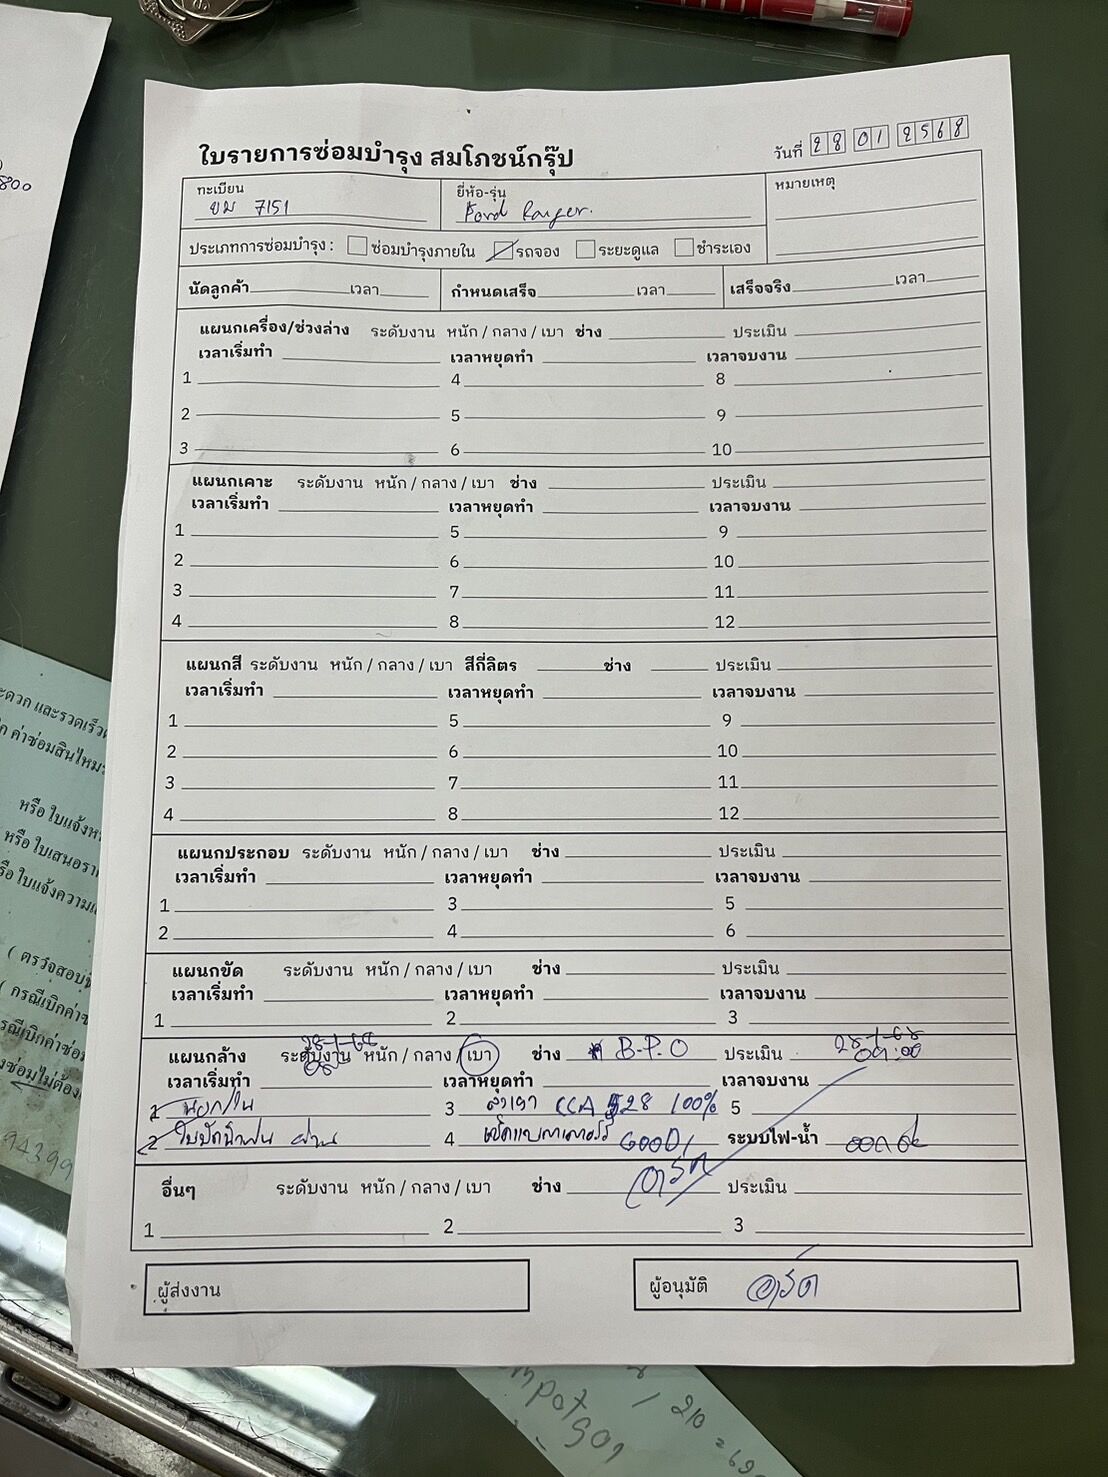 ใบรายการซ่อมบำรุง สมโภชน์กรุ๊ป
วันที่ 28 01 2568
ทะเบียน ขม 7151
ยี่ห้อ-รุ่น Ford Ranger.
หมายเหตุ
ประเภทการซ่อมบำรุง : ซ่อมบำรุงภายใน รถจอง ระยะดูแล ชำระเอง
นัดลูกค้า เวลา กำหนดเสร็จ เวลา เสร็จจริง เวลา
แผนกเครื่อง/ช่วงล่าง ระดับงาน หนัก / กลาง / เบา ช่าง ประเมิน
เวลาเริ่มทำ เวลาหยุดทำ เวลาจบงาน
1 4 8
2 5 9
3 6 10
แผนกเคาะ ระดับงาน หนัก / กลาง / เบา ช่าง ประเมิน
เวลาเริ่มทำ เวลาหยุดทำ เวลาจบงาน
1 5 9
2 6 10
3 7 11
4 8 12
แผนกสี ระดับงาน หนัก / กลาง / เบา สีกี่ลิตร ช่าง ประเมิน
เวลาเริ่มทำ เวลาหยุดทำ เวลาจบงาน
1 5 9
2 6 10
3 7 11
4 8 12
แผนกประกอบ ระดับงาน หนัก / กลาง / เบา ช่าง ประเมิน
เวลาเริ่มทำ เวลาหยุดทำ เวลาจบงาน
1 3 5
2 4 6
แผนกขัด ระดับงาน หนัก / กลาง / เบา ช่าง ประเมิน
เวลาเริ่มทำ เวลาหยุดทำ เวลาจบงาน
1 2 3
28-1-68 28-1-68
แผนกล้าง ระดับงาน หนัก / กลาง / เบา ช่าง B.P.O ประเมิน
เวลาเริ่มทำ เวลาหยุดทำ เวลาจบงาน
1 นอก/ใน 3 CCA 528 100% 5
2 ใบปัดน้ำฝน ผ่าน 4 GOOD ระบบไฟ-น้ำ
อื่นๆ ระดับงาน หนัก / กลาง / เบา ช่าง ประเมิน
1 2 3
ผู้ส่งงาน ผู้อนุมัติ
หรือ ใบแจ้ง
( ตรวจสอบ
94399
210